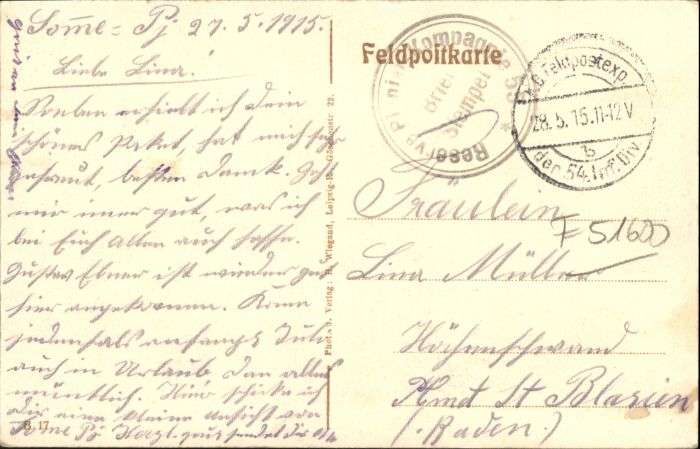 Somme-Py 27.5.1915.
Liebe Lina!
Soeben erhielt ich Dein
schönes Paket, hat mich sehr
gefreut, besten Dank. Geht
mir imer gut, was ich
bei Euch Allen auch hoffe.
Gustav Ebner ist wieder gut
hier angekommen. Kome
jedenfals anfangs Juli
auch in Urlaub Dan alles
mündlich. Hier schicke ich
Dir eine kleine Ansicht von
Some Py Herzl. grüs sendet dir
B. 17
Phot. u. Verlag: H. Wiegand, Leipzig-R., 23.
Feldpostkarte
Reserve Pionier Kompagnie 53
Brief
Stempel
K.D. Feldpostexp.
28.5.15.11-12V
b
der 54. Inf. Div.
Fräulein
F 51600
Lina Müller
Höchenschwand
Amt St Blasien
(Baden)